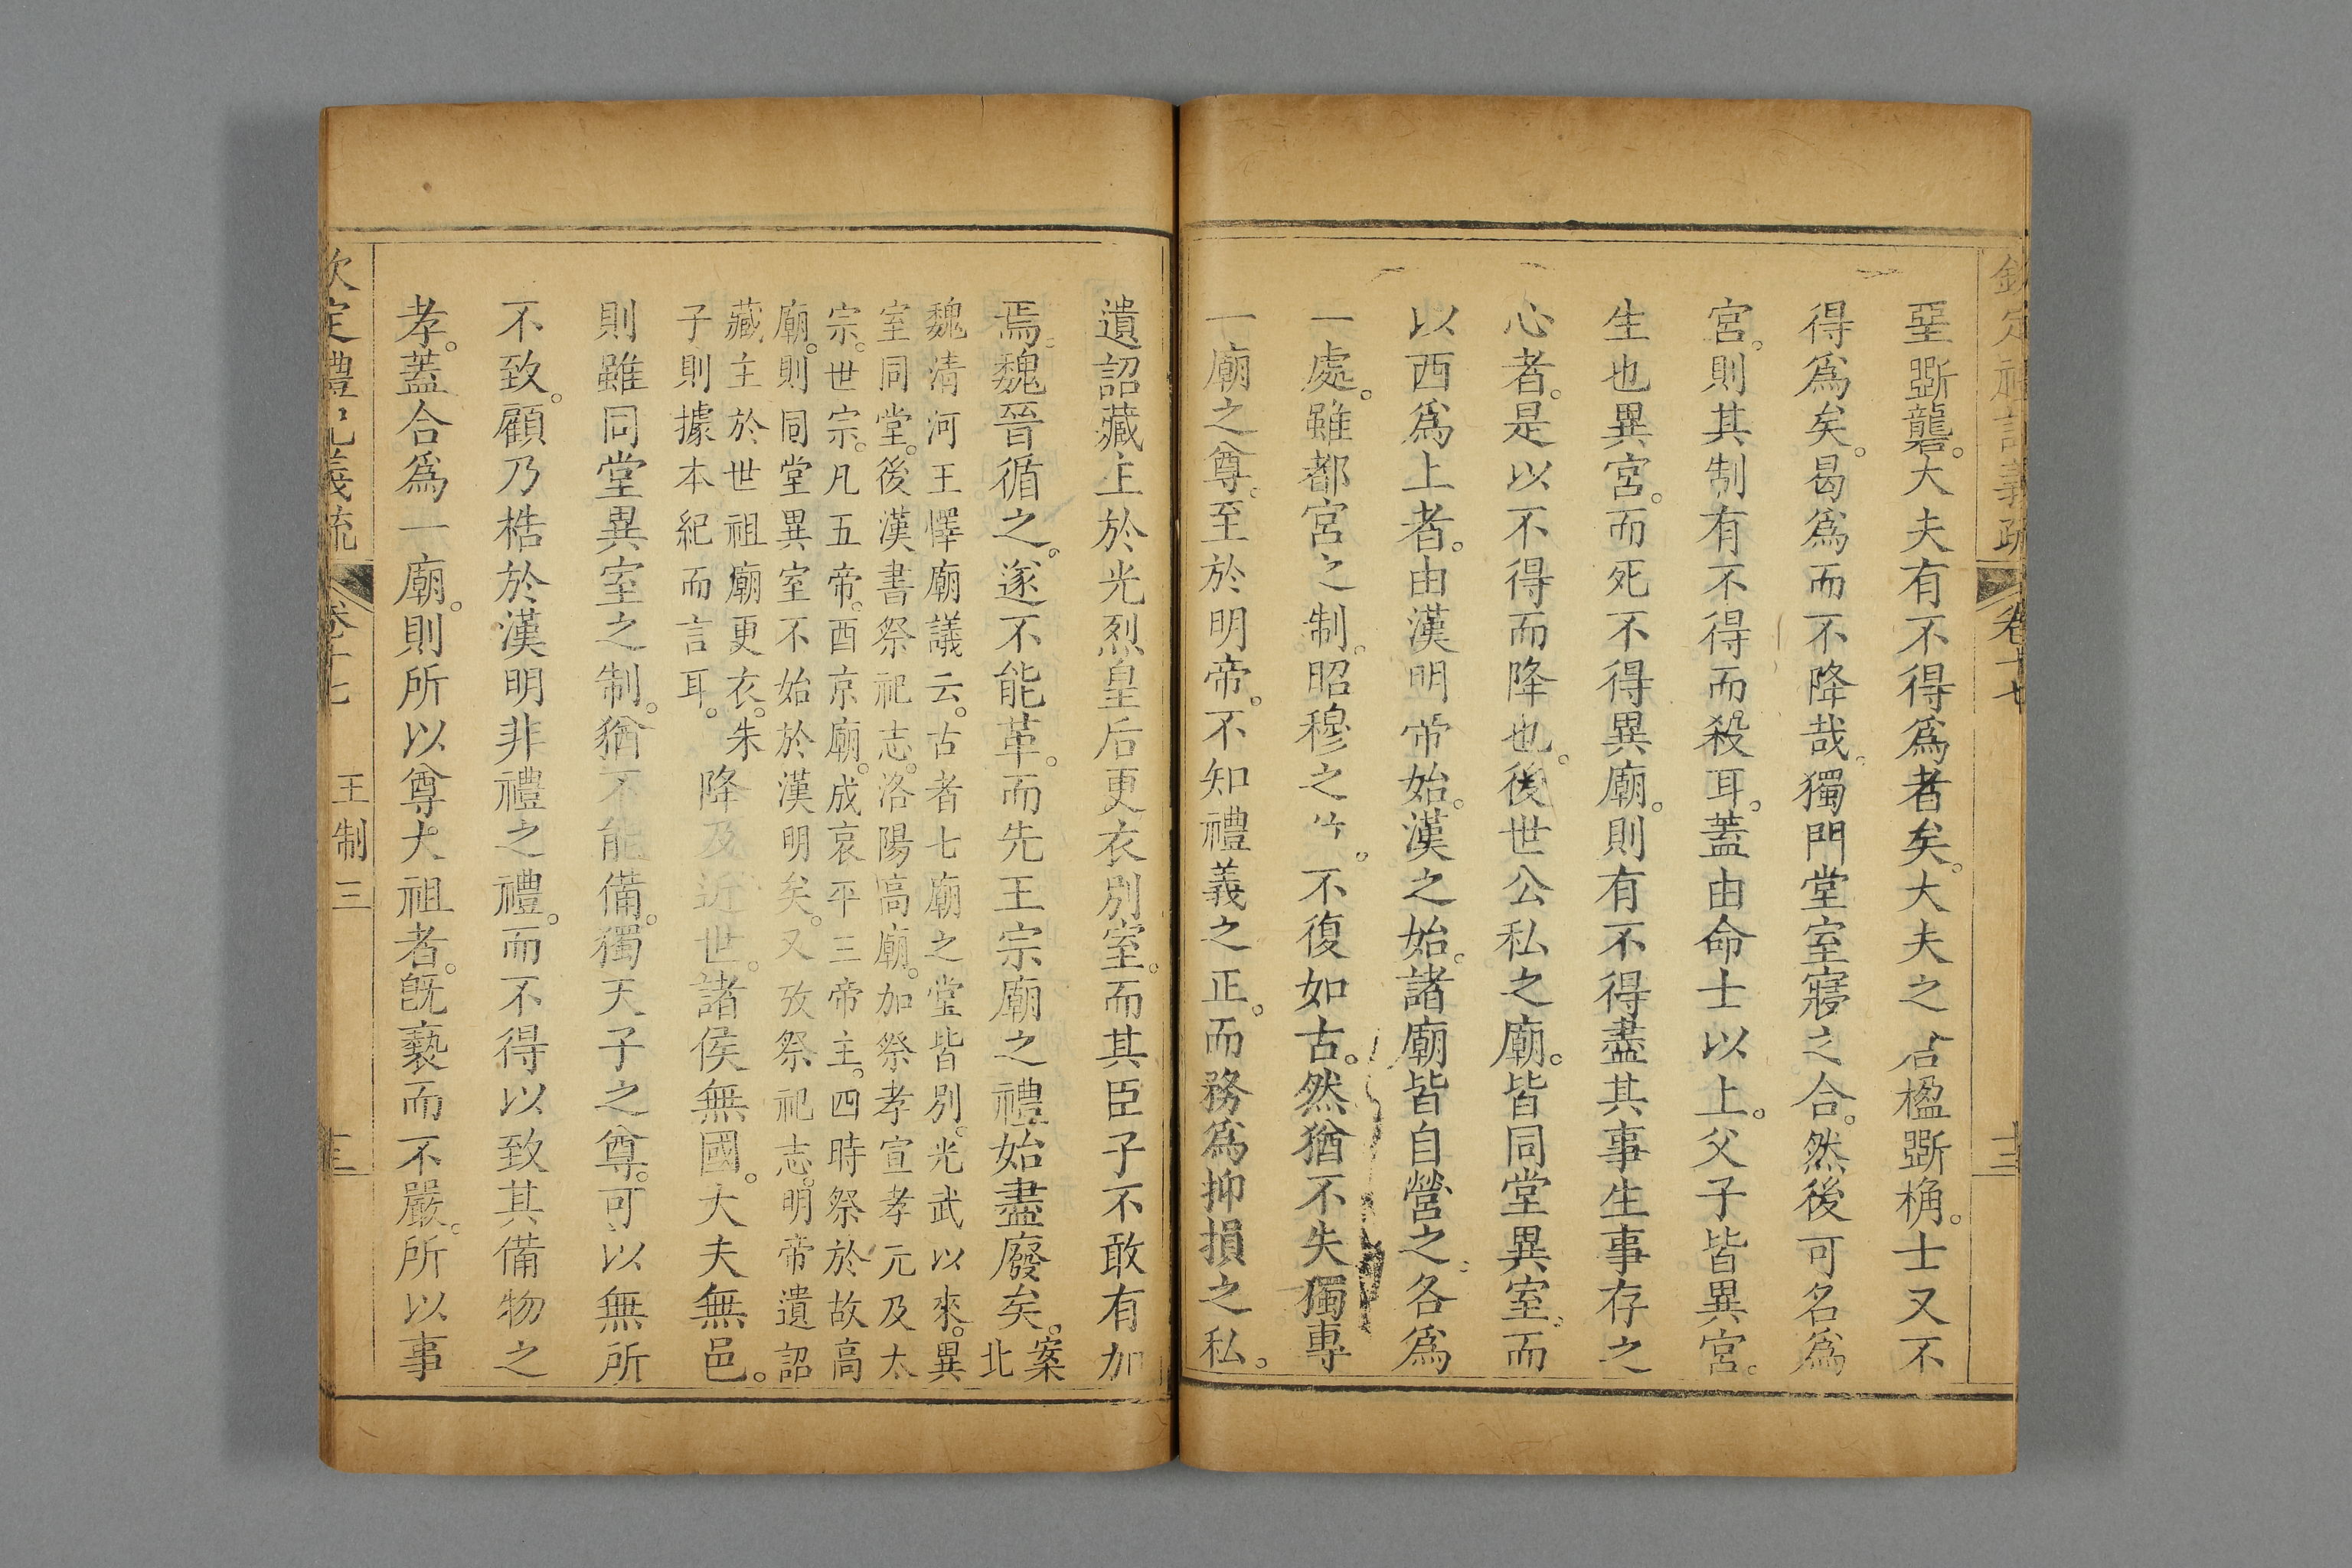 欽定禮記義疏 卷十七
堊斵礲。大夫有不得爲者矣。大夫之倉楹斵桷。士又不
得爲矣。曷爲而不降哉。獨門堂室寢之合。然後可名爲
宮。則其制有不得而殺耳。蓋由命士以上。父子皆異宮。
生也異宮。而死不得異廟。則有不得盡其事生事存之
心者。是以不得而降也。後世公私之廟。皆同堂異室。而
以西爲上者。由漢明帝始。漢之始。諸廟皆自營之。各爲
一處。雖都宮之制。昭穆之 。不復如古。然猶不失獨專
一廟之尊。至於明帝。不知禮義之正。而務爲抑損之私。
遺詔藏主於光烈皇后更衣別室。而其臣子不敢有加
焉。魏晉循之。遂不能革。而先王宗廟之禮始盡廢矣。案北
魏清河王懌廟議云。古者七廟之堂皆別。光武以來。異
室同堂。後漢書祭祀志。洛陽高廟。加祭孝宣孝元及太
宗。世宗。凡五帝。西京廟。成哀平三帝主。四時祭於故高
廟。則同堂異室不始於漢明矣。又攷祭祀志。明帝遺詔
藏主於世祖廟更衣。朱
子則據本紀而言耳。
降及近世。諸侯無國。大夫無邑。
則雖同堂異室之制。猶不能備。獨天子之尊。可以無所
不致。顧乃梏於漢明非禮之禮。而不得以致其備物之
孝。蓋合爲一廟。則所以尊太祖者。旣褻而不嚴。所以事
欽定禮記義疏 卷十七 王制三